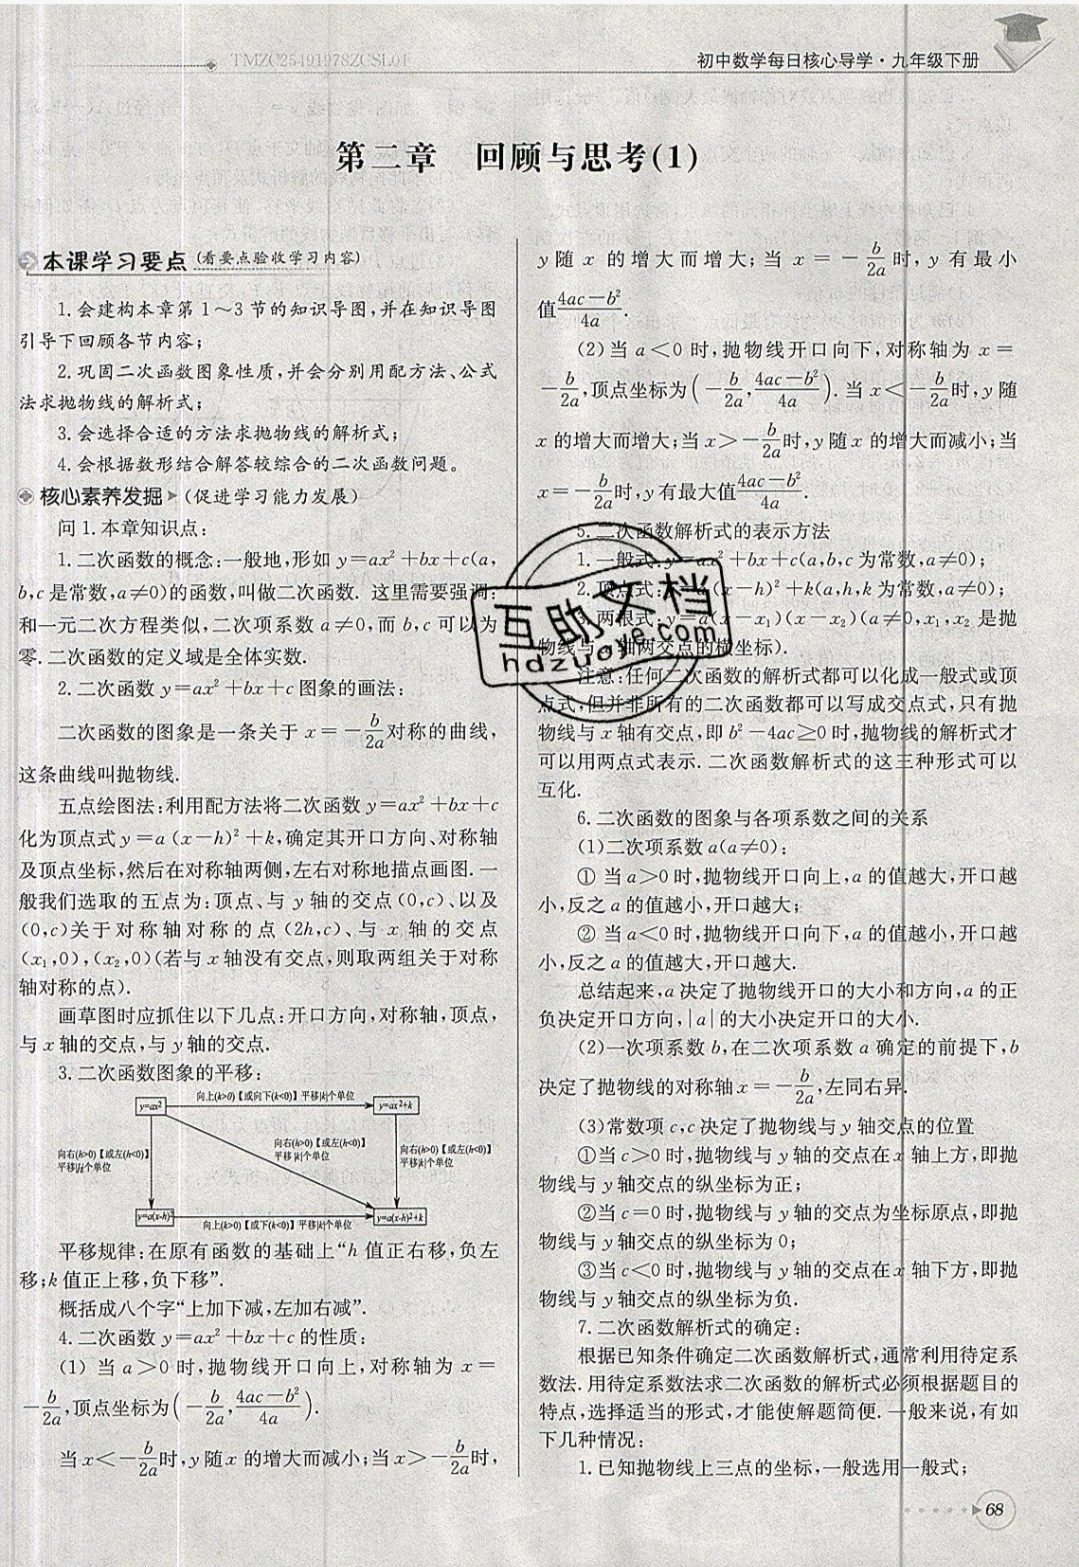 TMZC25491978ZCSL01
初中数学每日核心导学·九年级下册
第二章 回顾与思考(1)
本课学习要点(看要点验收学习内容)
1.会建构本章第1～3节的知识导图,并在知识导图
引导下回顾各节内容;
2.巩固二次函数图象性质,并会分别用配方法、公式
法求抛物线的解析式;
3.会选择合适的方法求抛物线的解析式;
4.会根据数形结合解答较综合的二次函数问题。
核心素养发掘(促进学习能力发展)
问1.本章知识点:
1.二次函数的概念:一般地,形如y=ax²+bx+c(a,
b,c是常数,a≠0)的函数,叫做二次函数. 这里需要强调:
和一元二次方程类似,二次项系数a≠0,而b,c可以为
零.二次函数的定义域是全体实数.
2.二次函数y=ax²+bx+c图象的画法:
二次函数的图象是一条关于x=-b/2a对称的曲线,
这条曲线叫抛物线.
五点绘图法:利用配方法将二次函数y=ax²+bx+c
化为顶点式y=a(x-h)²+k,确定其开口方向、对称轴
及顶点坐标,然后在对称轴两侧,左右对称地描点画图.一
般我们选取的五点为:顶点、与y轴的交点(0,c)、以及
(0,c)关于对称轴对称的点(2h,c)、与x轴的交点
(x₁,0),(x₂,0)(若与x轴没有交点,则取两组关于对称
轴对称的点).
画草图时应抓住以下几点:开口方向,对称轴,顶点,
与x轴的交点,与y轴的交点.
3.二次函数图象的平移:
向上(k>0)【或向下(k<0)】平移|k|个单位
y=ax²
y=ax²+k
向右(h>0)【或左(h<0)】
平移|h|个单位
向右(h>0)【或左(h<0)】
平移|k|个单位
向右(h>0)【或左(h<0)】
平移|k|个单位
y=a(x-h)²
y=a(x-h)²+k
向上(k>0)【或下(k<0)】平移|k|个单位
平移规律:在原有函数的基础上“h值正右移,负左
移;k值正上移,负下移”.
概括成八个字“上加下减,左加右减”.
4.二次函数y=ax²+bx+c的性质:
(1) 当a>0时,抛物线开口向上,对称轴为x=
-b/2a,顶点坐标为(-b/2a,4ac-b²/4a).
当x<-b/2a时,y随x的增大而减小;当x>-b/2a时,
y随x的增大而增大;当x=-b/2a时,y有最小
值4ac-b²/4a.
(2)当a<0时,抛物线开口向下,对称轴为x=
-b/2a,顶点坐标为(-b/2a,4ac-b²/4a).当x<-b/2a时,y随
x的增大而增大;当x>-b/2a时,y随x的增大而减小;当
x=-b/2a时,y有最大值4ac-b²/4a.
5.二次函数解析式的表示方法
1.一般式:y=ax²+bx+c(a,b,c为常数,a≠0);
2.顶点式:y=a(x-h)²+k(a,h,k为常数,a≠0);
3.两根式:y=a(x-x₁)(x-x₂)(a≠0,x₁,x₂是抛
物线与x轴两交点的横坐标).
注意:任何二次函数的解析式都可以化成一般式或顶
点式,但并非所有的二次函数都可以写成交点式,只有抛
物线与x轴有交点,即b²-4ac≥0时,抛物线的解析式才
可以用两点式表示.二次函数解析式的这三种形式可以
互化.
6.二次函数的图象与各项系数之间的关系
(1)二次项系数a(a≠0):
① 当a>0时,抛物线开口向上,a的值越大,开口越
小,反之a的值越小,开口越大;
② 当a<0时,抛物线开口向下,a的值越小,开口越
小,反之a的值越大,开口越大.
总结起来,a决定了抛物线开口的大小和方向,a的正
负决定开口方向,|a|的大小决定开口的大小.
(2)一次项系数b,在二次项系数a确定的前提下,b
决定了抛物线的对称轴x=-b/2a,左同右异.
(3)常数项c,c决定了抛物线与y轴交点的位置
①当c>0时,抛物线与y轴的交点在x轴上方,即抛
物线与y轴交点的纵坐标为正;
②当c=0时,抛物线与y轴的交点为坐标原点,即抛
物线与y轴交点的纵坐标为0;
③当c<0时,抛物线与y轴的交点在x轴下方,即抛
物线与y轴交点的纵坐标为负.
7.二次函数解析式的确定:
根据已知条件确定二次函数解析式,通常利用待定系
数法.用待定系数法求二次函数的解析式必须根据题目的
特点,选择适当的形式,才能使解题简便.一般来说,有如
下几种情况:
1.已知抛物线上三点的坐标,一般选用一般式;
68
互助文档
hdzuoye.com